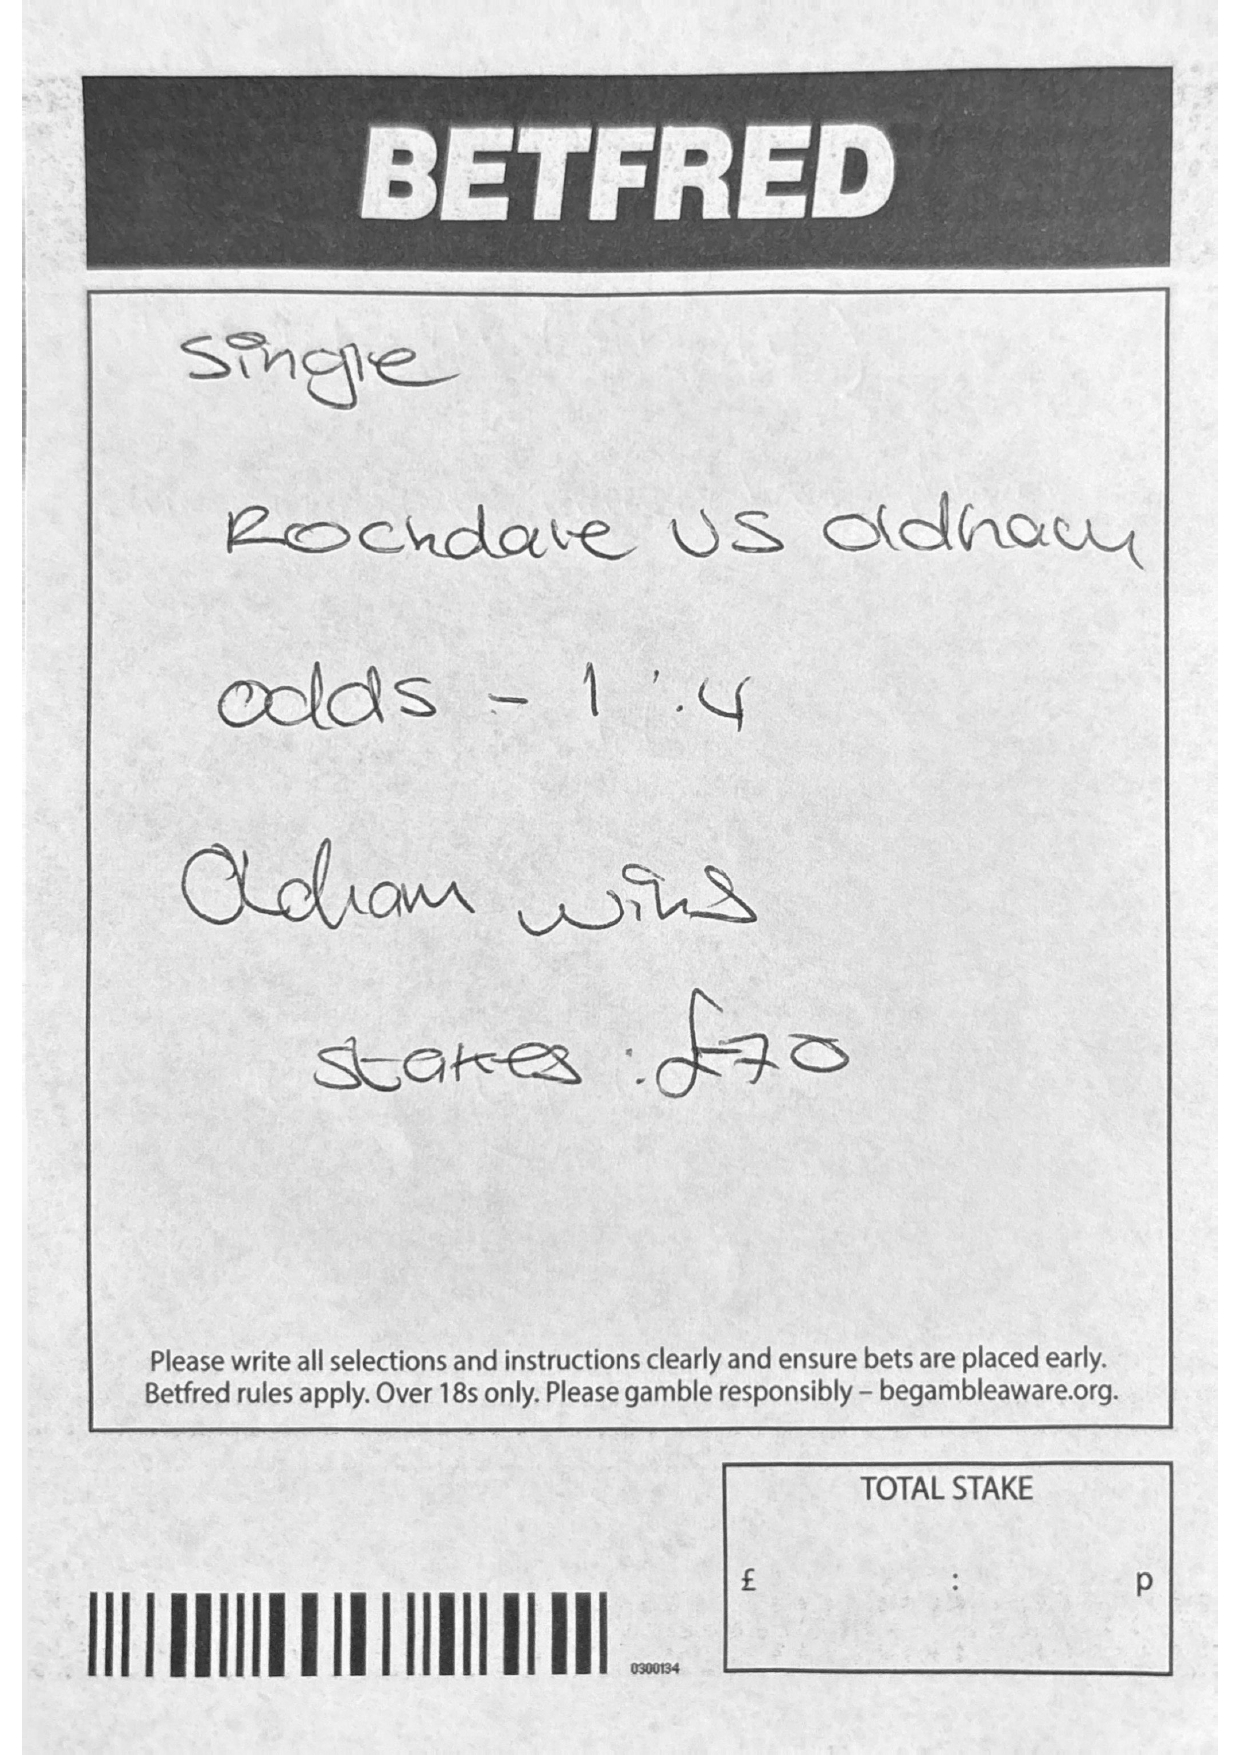 BETFRED
Single
Rochdale VS Oldham
odds - 1 : 4
Oldham wins
stakes : £70
Please write all selections and instructions clearly and ensure bets are placed early.
Betfred rules apply. Over 18s only. Please gamble responsibly – begambleaware.org.
TOTAL STAKE
£ : p
0300134